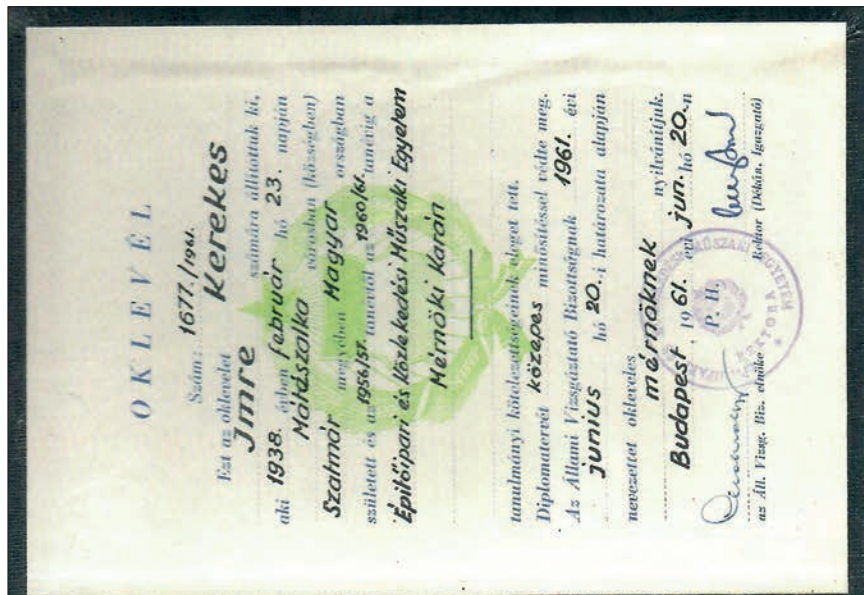 OKLEVÉL
Szám: 1677./1961.
Ezt az oklevelet
Imre Kerekes számára állítottuk ki,
aki 1938. évben február hó 23. napján
Mátészalka városban (községben)
Szatmár megyében Magyar országban
született és az 1956/57. tanévtől az 1960/61. tanévig a
Építőipari és Közlekedési Műszaki Egyetem
Mérnöki Karán
tanulmányi kötelezettségeinek eleget tett.
Diplomatervét közepes minősítéssel védte meg.
Az Állami Vizsgáztató Bizottságnak 1961. évi
június hó 20.-i határozata alapján
nevezettet okleveles
mérnöknek nyilvánítjuk.
Budapest, 1961. évi jun. hó 20.-n
P. H.
az Áll. Vizsg. Biz. elnöke
Rektor (Dékán, Igazgató)
MŰSZAKI EGYETEM
REKTORA